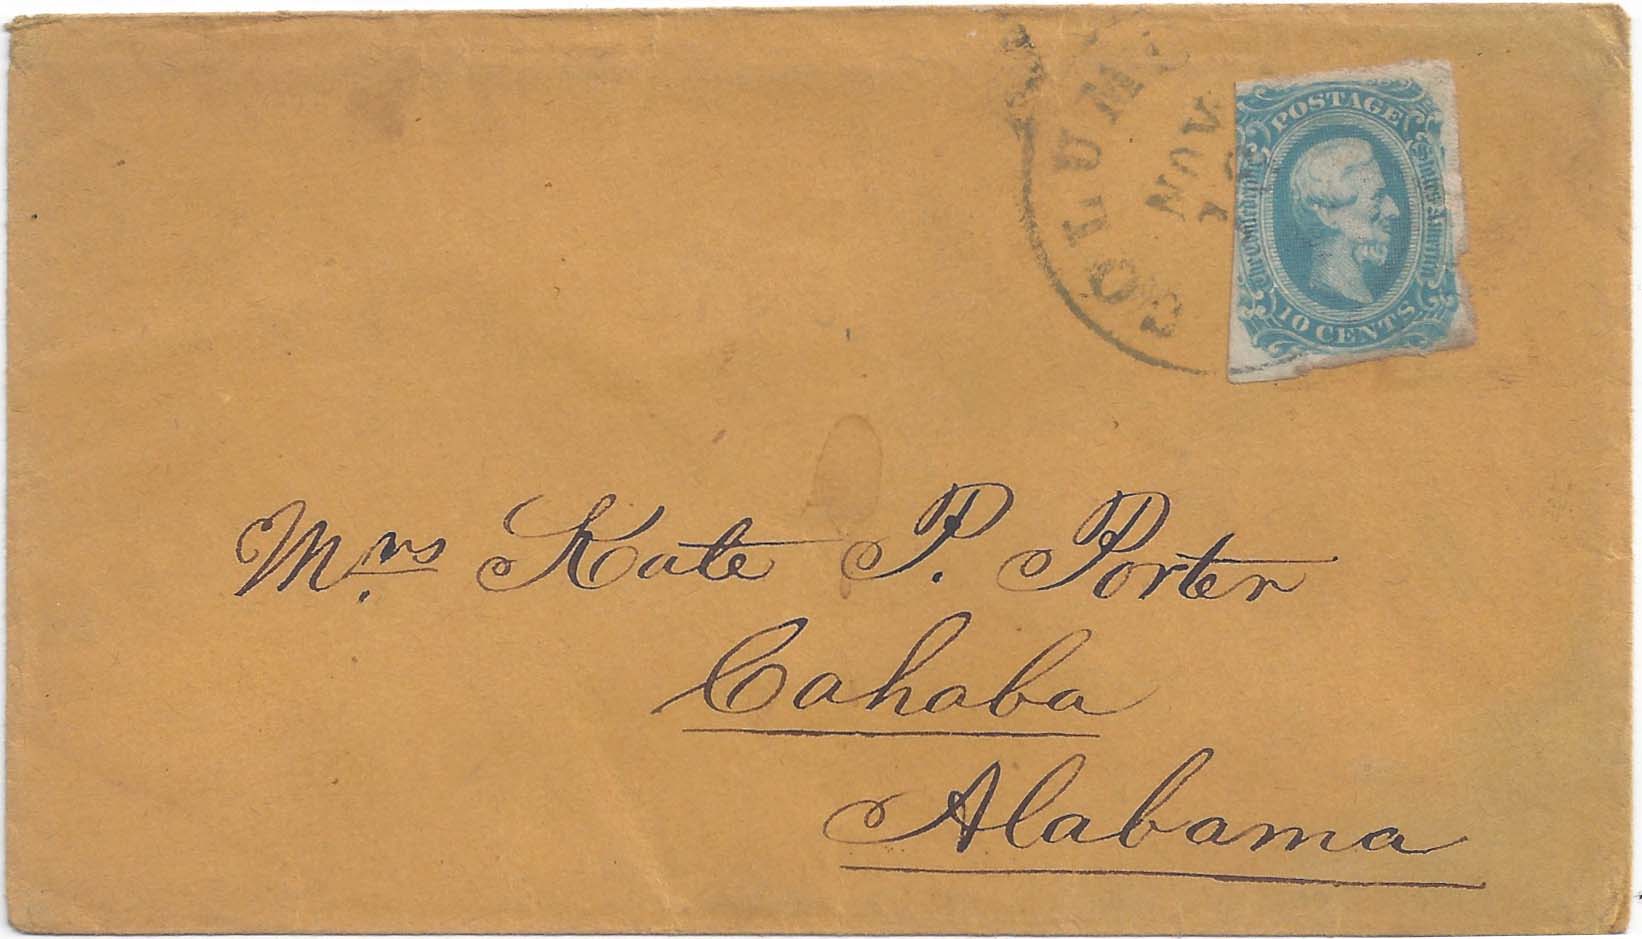 COLUMB
NOV
POSTAGE
The Confederate States of America
10 CENTS
Mrs. Kate P. Porter
Cahaba
Alabama